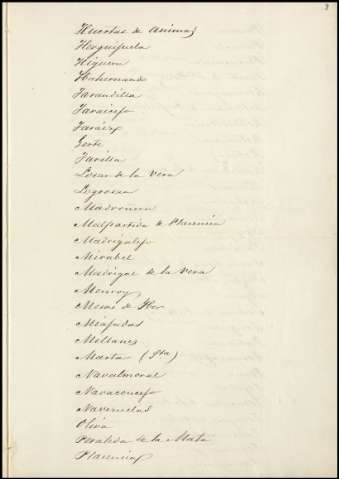 3
Huertas de Animas
Herguijuela
Higuera
Hohernando
Jarandilla
Jaraicejo
Jaraiz
Jerte
Jarilla
Losar de la vera
Logrosan
Madroñera
Malpartida de Plasencia
Madrigalejo
Mirabel
Madrigal de la vera
Monroy
Mesas de Ibor
Miajadas
Millanes
Marta (Sta)
Navalmoral
Navaconcejo
Navezuelas
Oliva
Peraleda de la Mata
Plasencia